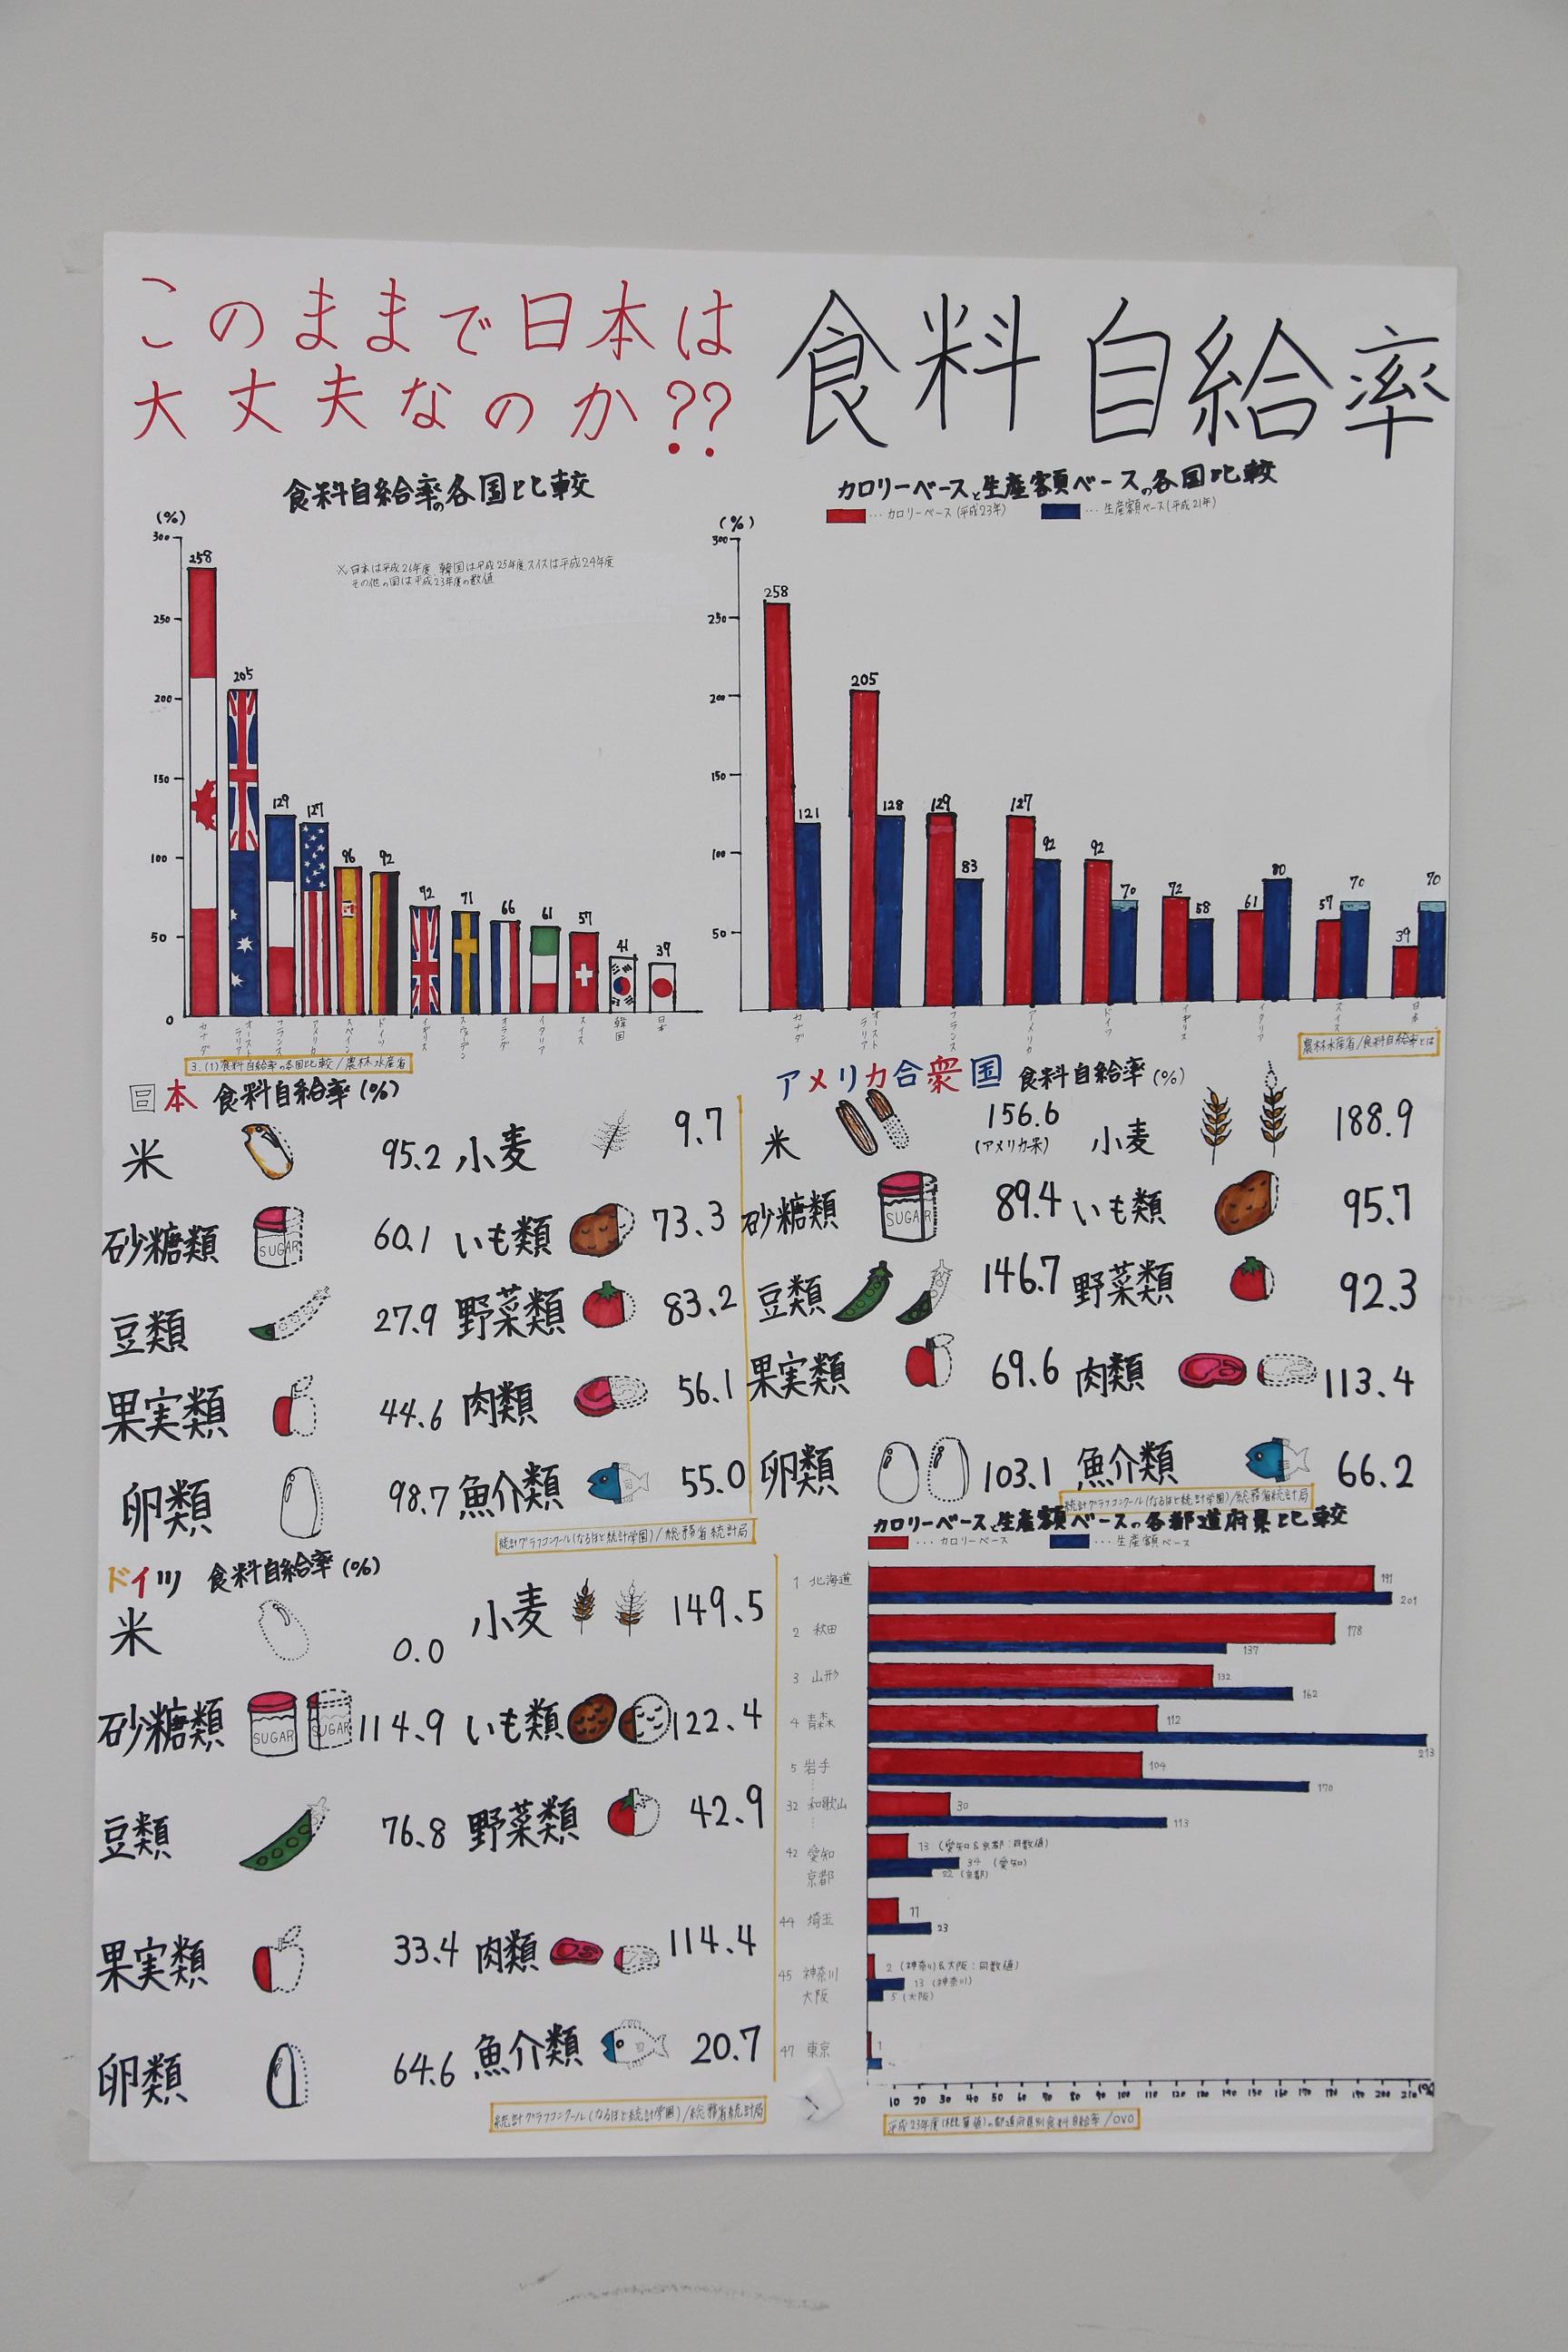 このままで日本は
大丈夫なのか??
食料自給率
食料自給率の各国比較
(%)
※日本は平成26年度、韓国は平成25年度、スイスは平成24年度
その他の国は平成23年度の数値
300
250
200
150
100
50
0
258
205
129
127
96
92
92
71
66
61
57
41
39
カナダ
オーストラリア
フランス
アメリカ
スペイン
ドイツ
イギリス
スウェーデン
オランダ
イタリア
スイス
韓国
日本
3.(1)食料自給率の各国比較/農林水産省
カロリーベースと生産額ベースの各国比較
…カロリーベース(平成23年) …生産額ベース(平成21年)
(%)
300
250
200
150
100
50
258 121
205 128
129 83
127 92
92 70
72 58
61 80
57 70
39 70
カナダ
オーストラリア
フランス
アメリカ
ドイツ
イギリス
イタリア
スイス
日本
農林水産省/食料自給率とは
日本 食料自給率(%)
米 95.2 小麦 9.7
砂糖類 SUGAR 60.1 いも類 73.3
豆類 27.9 野菜類 83.2
果実類 44.6 肉類 56.1
卵類 98.7 魚介類 55.0
統計グラフコンクール(なるほど統計学園)/総務省統計局
アメリカ合衆国 食料自給率(%)
米 156.6 小麦 188.9
(アメリカ米)
砂糖類 SUGAR 89.4 いも類 95.7
豆類 146.7 野菜類 92.3
果実類 69.6 肉類 113.4
卵類 103.1 魚介類 66.2
統計グラフコンクール(なるほど統計学園)/総務省統計局
ドイツ 食料自給率(%)
米 0.0 小麦 149.5
砂糖類 SUGAR SUGAR 114.9 いも類 122.4
豆類 76.8 野菜類 42.9
果実類 33.4 肉類 114.4
卵類 64.6 魚介類 20.7
統計グラフコンクール(なるほど統計学園)/総務省統計局
カロリーベースと生産額ベースの各都道府県比較
…カロリーベース …生産額ベース
1 北海道 191
201
2 秋田 178
137
3 山形 132
162
4 青森 112
213
5 岩手 104
170
32 和歌山 30
113
42 愛知 13 (愛知&京都:同数値)
34 (愛知)
京都 22 (京都)
44 埼玉 11
23
45 神奈川 2 (神奈川&大阪:同数値)
13 (神奈川)
大阪 5 (大阪)
47 東京 1
10 20 30 40 50 60 70 80 90 100 110 120 130 140 150 160 170 180 190 200 210 (%)
平成23年度(概算値)の都道府県別食料自給率/OVO